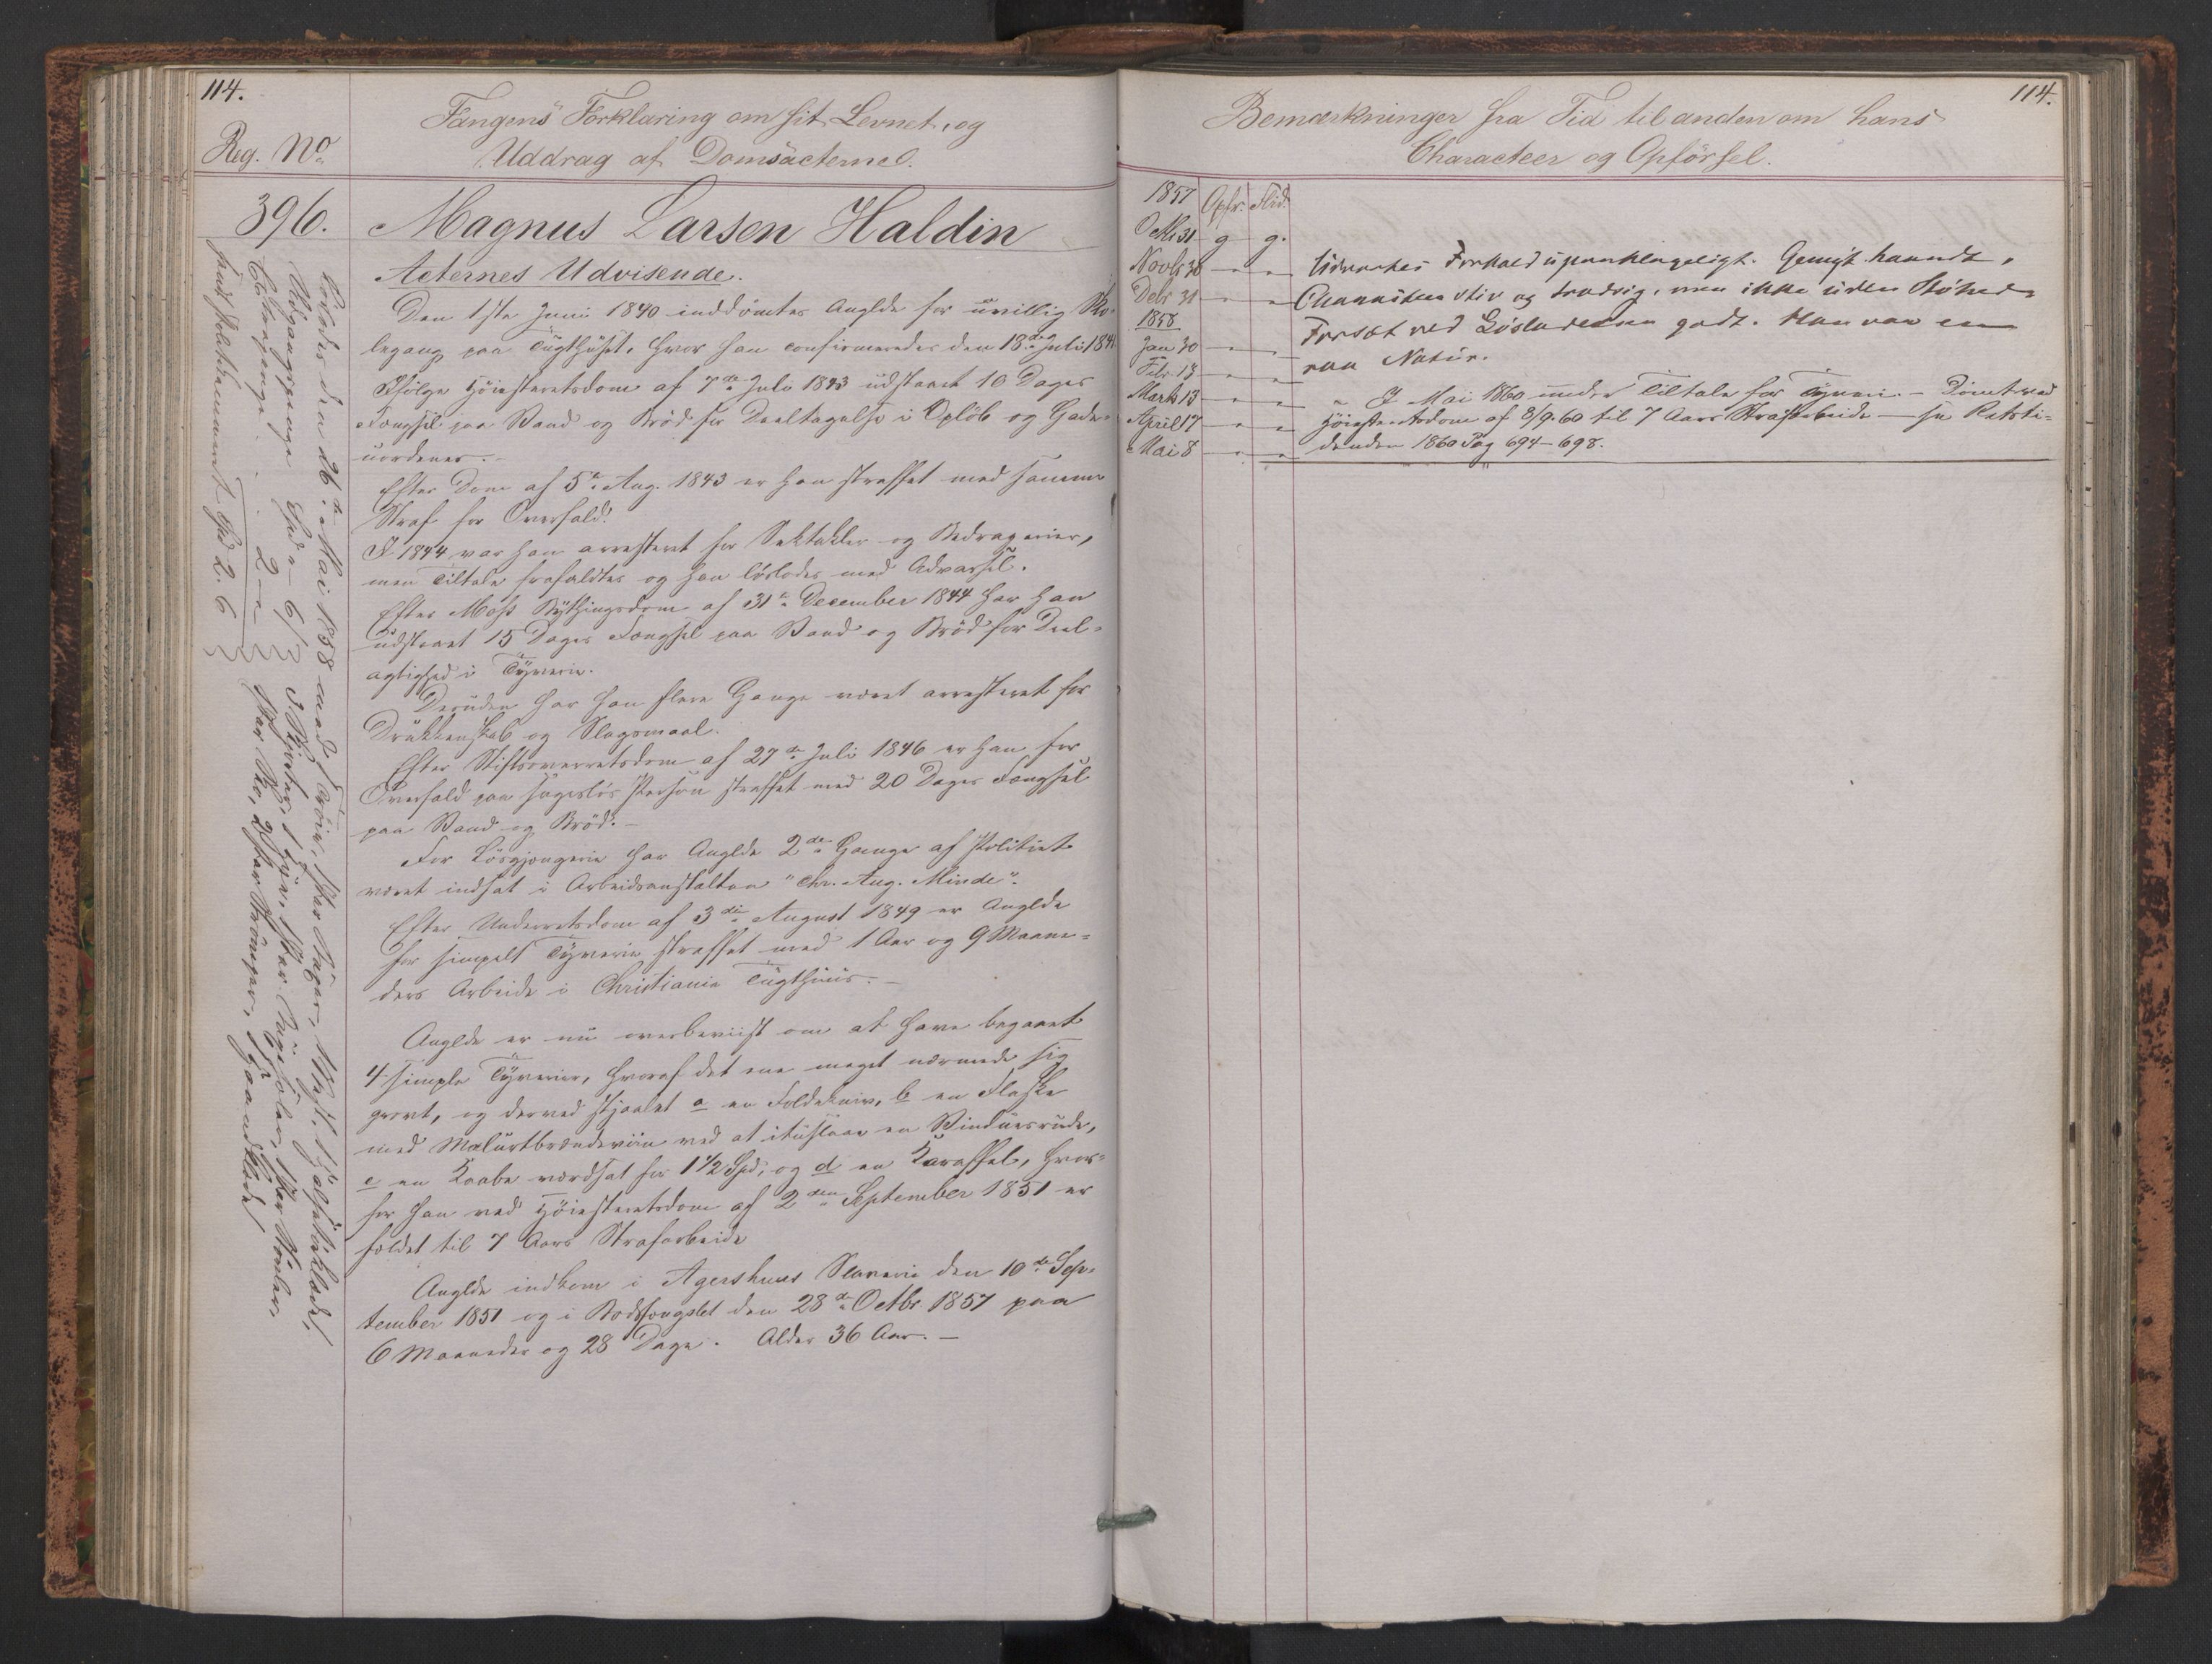 114.
Reg. No
Fangens Forklaring om sit Levnet, og
Uddrag af Domsacterne.
396.
Magnus Larsen Haldin
Acternes Udvisende.
Den 1ste Juni 1840 inddömtes Anglde for uvillig Sko-
legang paa Tugthuset, hvor han confirmeredes den 18de Juli 184
Ifølge Höiesteretsdom af 7de Juli 1843 udstaaet 10 Dages
Fængsel paa Vand og Bröd for Deeltagelse i Oplöb og Gade-
uordener.-
Efter Dom af 5te Aug. 1843 er han straffet med samme
Straf for Overfald.
I 1844 var han arresteret for Spektakler og Bedragerier,
men Tiltale frafaldtes og han löslodes med Advarsel.
Efter Moss Bythingsdom af 31te December 1844 har han
udstaaet 15 Dages Fængsel paa Vand og Bröd for Deel-
agtighed i Tyverie.
Desuden har han flere Gange været arresteret for
Drukkenskab og Slagsmaal.
Efter Stiftsoverretsdom af 27de Juli 1846 er han for
Overfald paa sageslös Person straffet med 20 Dages Fængsel
paa Vand og Bröd.-
For Lösgjængerie har Anglde 2de Gange af Politiet
været indsat i Arbeidsanstalten "Chr. Aug. Minde".
Efter Underretsdom af 3die August 1849 er Anglde
for simpelt Tyverie straffet med 1 Aar og 9 Maane-
ders Arbeide i Christiania Tugthuus.-
Anglde er nu overbeviist om at have begaaet
4 simple Tyverier, hvoraf det ene meget nærmede sig
grovt, og derved stjaalet a en Foldekniv, b en Flaske
med Malurtbrændeviin ved at ituslaae en Vinduesrude,
c en Kaabe værdsat for 1 1/2 Spd; og d en Karaffel, hvor-
for han ved Höiesteretsdom af 2den September 1851 er
fældet til 7 Aars Strafarbeide
Anglde indkom i Agershuus Slaverie den 10de Sep-
tember 1851 og i Bodsfængslet den 28de Octbr. 1857 paa
6 Maaneder og 28 Dage. Alder 36 Aar.-
Löslodes den 26de Mai 1858 med
Udgangspenge Spd - 6
2 - -
Spd 2. 6
114.
Bemærkninger fra Tid til anden om hans
Characteer og Opförsel.
1857 Opfr. Flid.
Octbr 31 g g.
Novbr 30 " "
Debr 31 " "
1858
Jan 30 " "
Febr 13 " "
Marts 13 " "
April 17 " "
Mai 8 " "
Udvortes Forhold upaaklageligt. Gemyt haardt,
Characteren stiv og trodsig, men ikke uden
Forsæt ved Lösladelsen godt. Han var en
raa Natur.
" I Mai 1860 under Tiltale for Tyveri.- Dömt ved
Höiesteretsdom af 8/9.60 til 7 Aars Strafarbeide - se Retsti-
denden 1860 Pag 694-698.